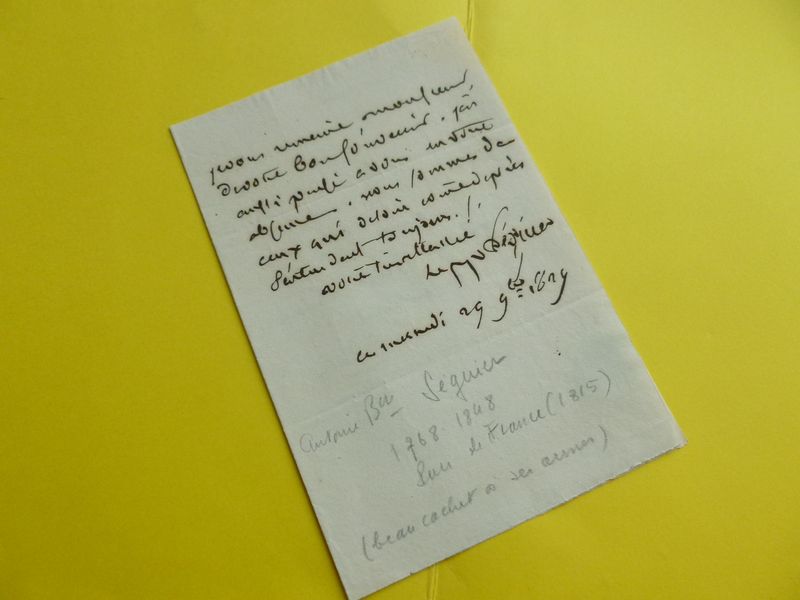 je vous remercie monsieur
de votre bon souvenir, j'ai
aussi pensé a vous en votre
absence, nous sommes de
ceux qui de loin comme de près
s'entendent toujours.
votre
le Séguier
ce mercredi 29 9bre 1829
Antoine Bon Séguier
1768-1848
Pair de France (1815)
(beau cachet à ses armes)